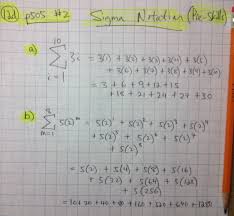 12d p505 #2 Sigma Notation (Pre-Skills)
a) 10 Σ i=1 3i = 3(1) + 3(2) + 3(3) + 3(4) + 3(5)
+ 3(6) + 3(7) + 3(8) + 3(9) + 3(10)
= 3 + 6 + 9 + 12 + 15
+ 18 + 21 + 24 + 27 + 30
b) 8 Σ m=1 5(2)^m = 5(2)^1 + 5(2)^2 + 5(2)^3 + 5(2)^4
+ 5(2)^5 + 5(2)^6 + 5(2)^7
+ 5(2)^8
= 5(2) + 5(4) + 5(8) + 5(16)
+ 5(32) + 5(64) + 5(128)
+ 5(256)
= 10 + 20 + 40 + 80 + 160 + 320 + 640 + 1280